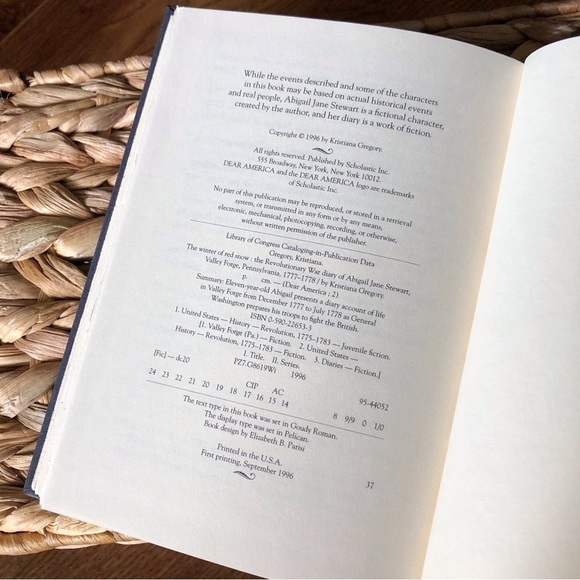 While the events described and some of the characters
in this book may be based on actual historical events
and real people, Abigail Jane Stewart is a fictional character,
created by the author, and her diary is a work of fiction.
Copyright © 1996 by Kristiana Gregory.
All rights reserved. Published by Scholastic Inc.
555 Broadway, New York, New York 10012.
DEAR AMERICA and the DEAR AMERICA logo are trademarks
of Scholastic Inc.
No part of this publication may be reproduced, or stored in a retrieval
system, or transmitted in any form or by any means,
electronic, mechanical, photocopying, recording, or otherwise,
without written permission of the publisher.
Library of Congress Cataloging-in-Publication Data
Gregory, Kristiana.
The winter of red snow : the Revolutionary War diary of Abigail Jane Stewart,
Valley Forge, Pennsylvania, 1777-1778 / by Kristiana Gregory.
p. cm. — (Dear America ; 2)
Summary: Eleven-year-old Abigail presents a diary account of life
in Valley Forge from December 1777 to July 1778 as General
Washington prepares his troops to fight the British.
ISBN 0-590-22653-3
1. United States — History — Revolution, 1775-1783 — Juvenile fiction.
[1. Valley Forge (Pa.) — Fiction. 2. United States —
History — Revolution, 1775-1783 — Fiction. 3. Diaries — Fiction.]
I. Title. II. Series.
PZ7.G8619Wi 1996
[Fic] — dc20 95-44052
CIP AC
24 23 22 21 20 19 18 17 16 15 14 8 9/9 0 1/0
The text type in this book was set in Goudy Roman.
The display type was set in Pelican.
Book design by Elizabeth B. Parisi
Printed in the U.S.A.
First printing, September 1996
37